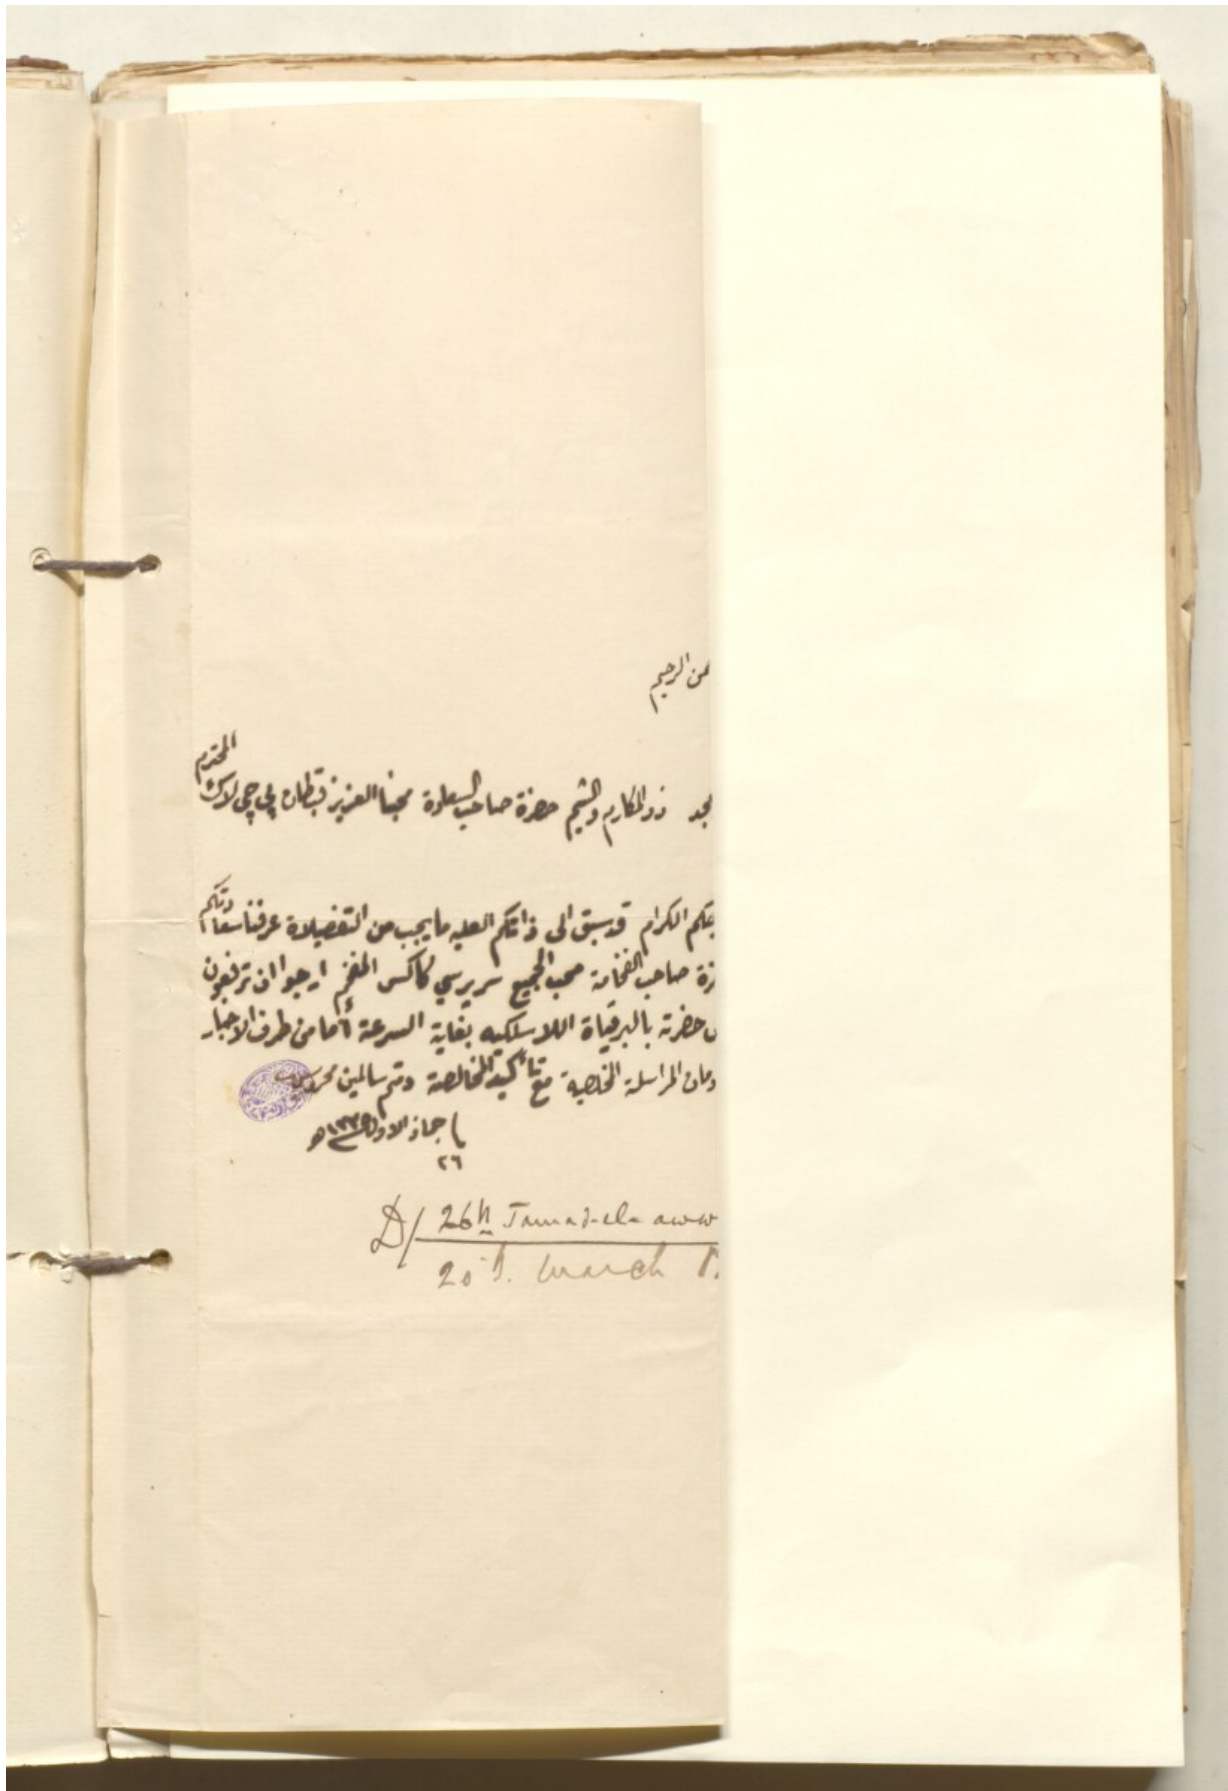 من الرحيم
المحترم
مجد ذو المكارم والشيم حضرة صاحب السعادة محبنا العزيز قبطان پي جي لاك
دتكم
قد سبق الى ذاتكم العليه ما يجب من التفضيلاة عرفنا سعا
صاحب الفخامة محب الجميع سر برسي كاكس المفخم ارجوا ان ترفعون
حضرته بالبرقياة اللاسلكيه بغاية السرعة أما من طرف الاخبار
المراسلة مع تأكيد المخالصة ودتم سالمين محروسين
جماد الاول ١٣٣٥هـ
٢٦
D/ 26th Jamad-el-aww
20th. March